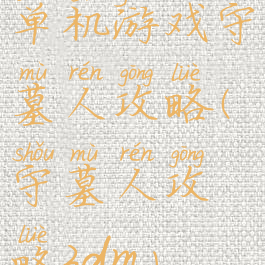 单机游戏守
mù rén gōng lüè
墓人攻略(
shǒu mù rén gōng
守墓人攻
lüè
略3dm)